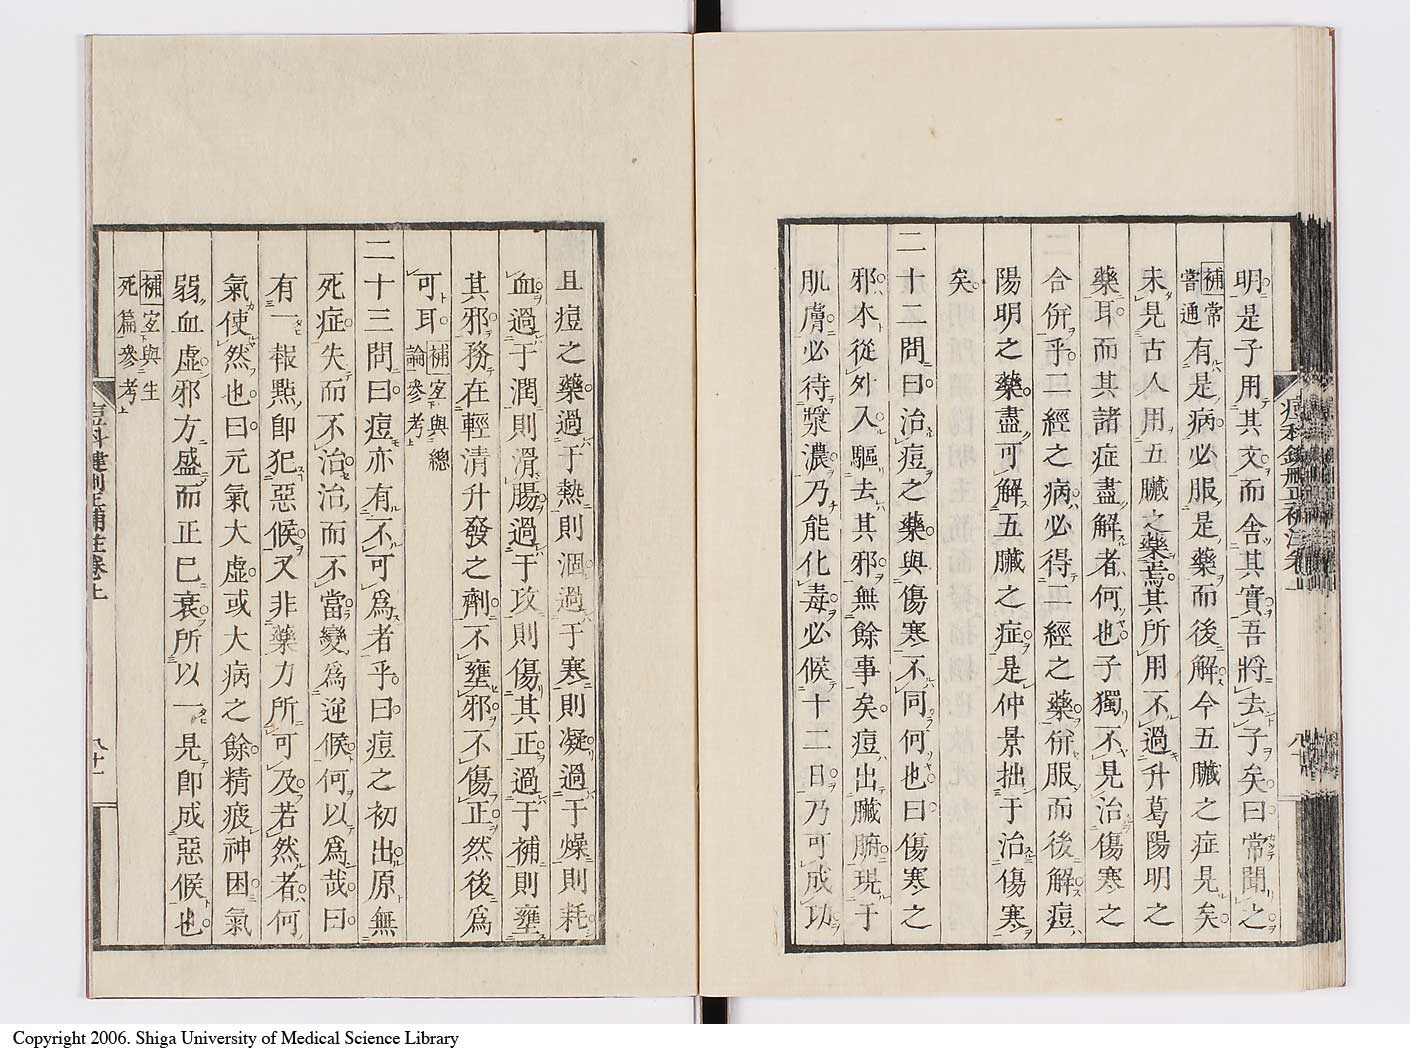 明是子用其文而舍其實吾將去子矣曰常聞之
補常嘗通
有是病必服是藥而後解今五臟之症見矣
未見古人用五臟之藥焉其所用不過升葛陽明之
藥耳而其諸症盡解者何也子獨不見治傷寒之
合併乎二經之病必得二經之藥併服而後解痘
陽明之藥盡可解五臟之症是仲景拙于治傷寒
矣
二十二問曰治痘之藥與傷寒不同何也曰傷寒之
邪本從外入驅去其邪無餘事矣痘出臟腑現于
肌膚必待漿濃乃能化毒必候十二日乃可成功
且痘之藥過于熱則涸過于寒則凝過于燥則耗
血過于潤則滑腸過于攻則傷其正過于補則壅
其邪務在輕清升發之劑不壅邪不傷正然後爲
可耳
補宜與總論參考
二十三問曰痘亦有不可爲者乎曰痘之初出原無
死症失而不治治而不當變爲逆候何以爲哉曰
有一報點即犯惡候又非藥力所可及若然者何
氣使然也曰元氣大虛或大病之餘精疲神困氣
弱血虛邪方盛而正已衰所以一見即成惡候也
補宜與生死篇參考
痘科鍵刪正補註卷上
八十一
Copyright 2006. Shiga University of Medical Science Library